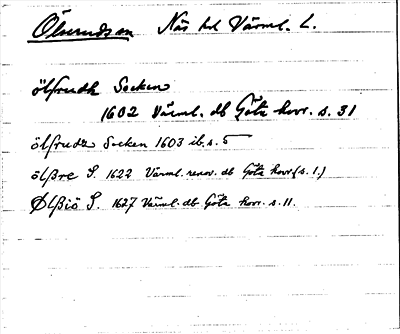 Ölserudssn Näs hd Värml. L.
ölsrudh Socken
1602 Värml. db Götz hovr. s. 31
ölsrudz Socken 1603 ib. s. 5
ölßre S. 1622 Värml. renov. db Göta hovr (s. 1.)
Ølßiö S. 1627 Värml. db Göta hovr. s. 11.